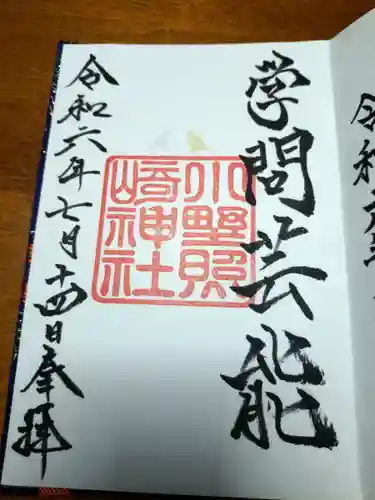 学問芸能
小野照
崎神社
令和六年七月十四日奉拝
令和六年